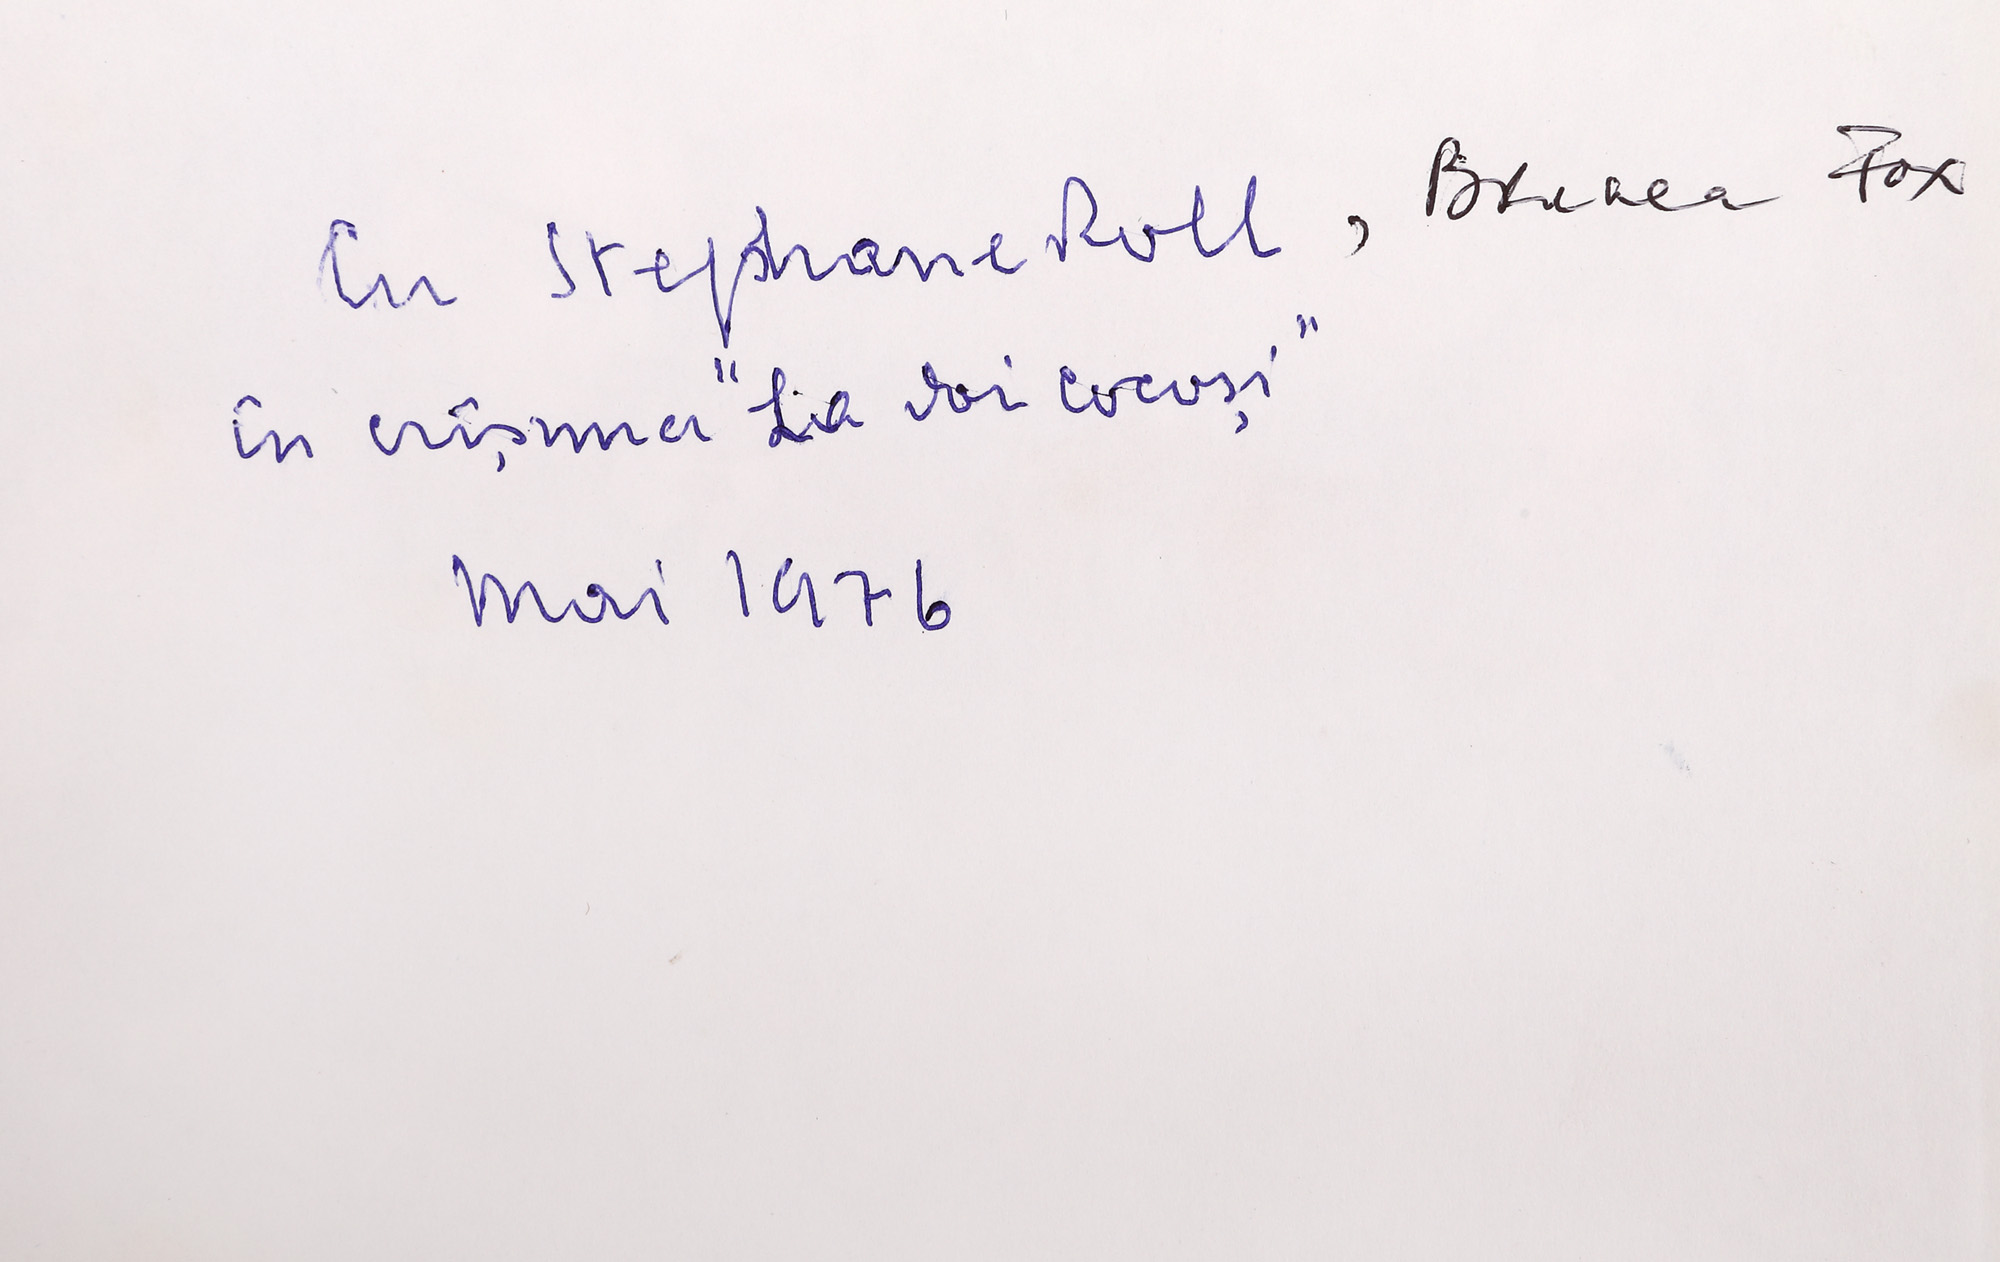 Cu Stephane Roll, Brunea Fox
în crîșma "La doi cocoși"
Mai 1976